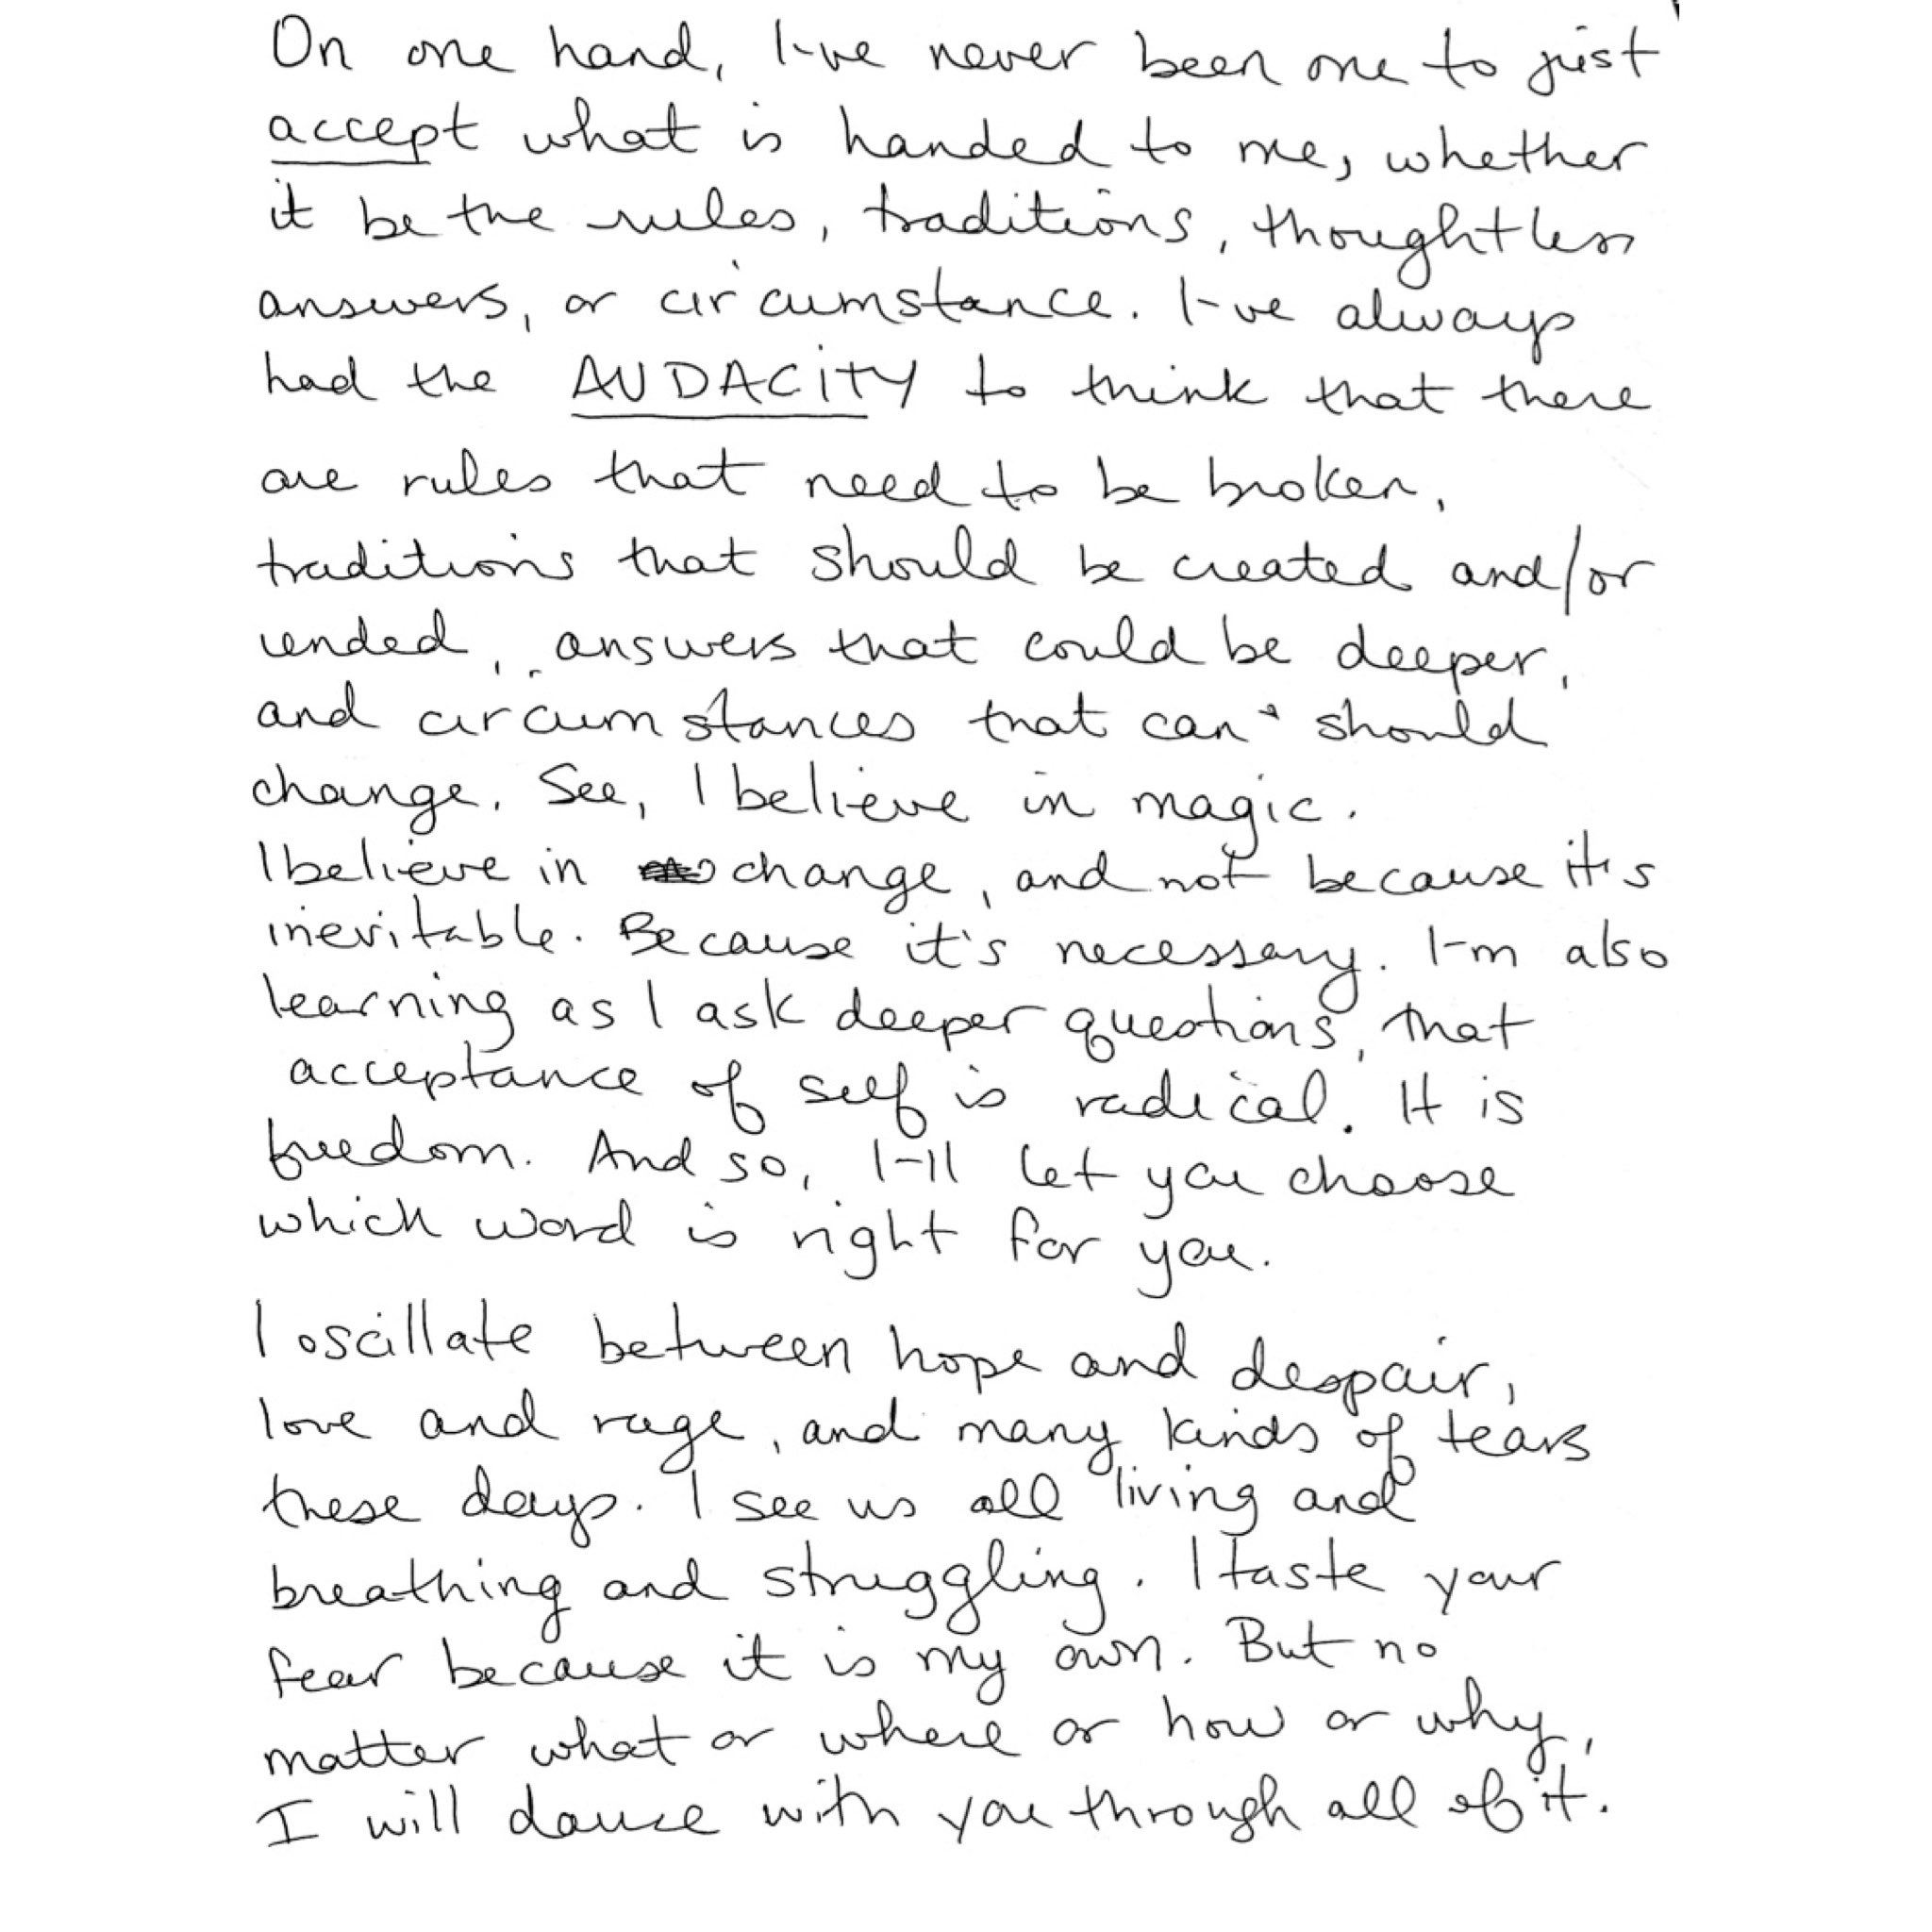 On one hand, I've never been one to just
accept what is handed to me, whether
it be the rules, traditions, thoughtless
answers, or circumstance. I've always
had the AUDACITY to think that there
are rules that need to be broken,
traditions that should be created and/or
ended, answers that could be deeper,
and circumstances that can + should
change. See, I believe in magic.
I believe in change, and not because it's
inevitable. Because it's necessary. I'm also
learning as I ask deeper questions, that
acceptance of self is radical. It is
freedom. And so, I'll let you choose
which word is right for you.
I oscillate between hope and despair,
love and rage, and many kinds of tears
these days. I see us all living and
breathing and struggling. I taste your
fear because it is my own. But no
matter what or where or how or why,
I will dance with you through all of it.